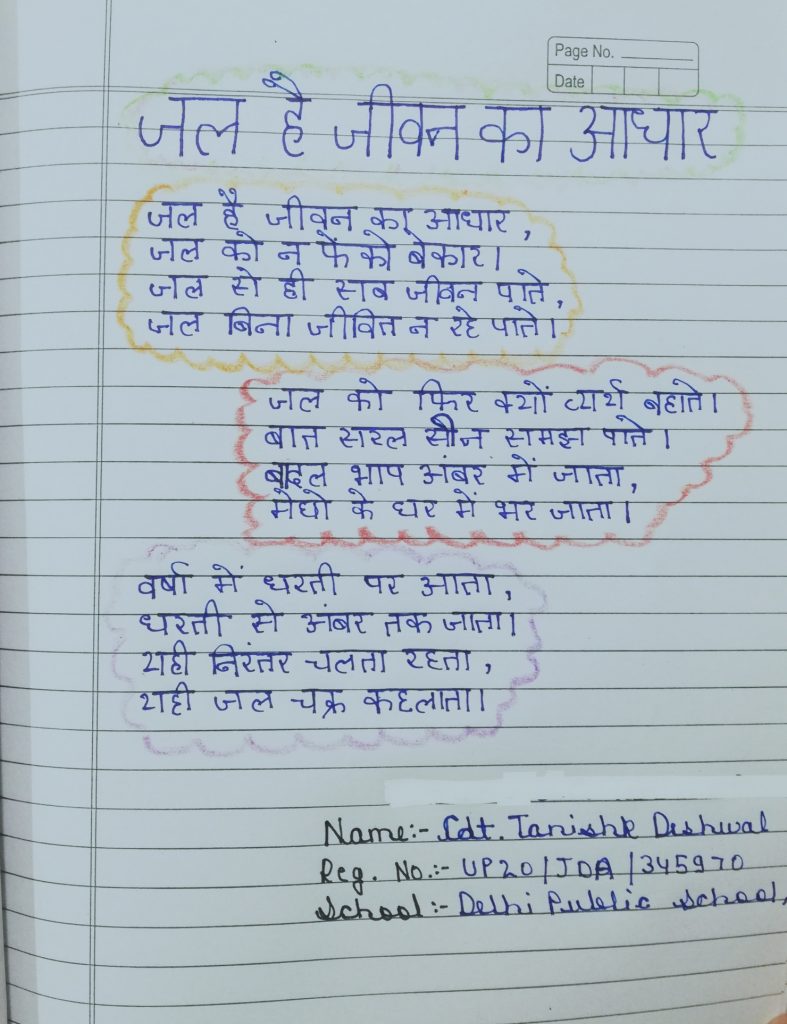 Page No.
Date
जल है जीवन का आधार
जल है जीवन का आधार,
जल को न फेंको बेकार।
जल से ही सब जीवन पाते,
जल बिना जीवित न रहे पाते।
जल को फिर क्यों व्यर्थ बहाते।
बात सरल सी न समझ पाते।
बादल भाप अंबर में जाता,
मेघो के घर में भर जाता।
वर्षा में धरती पर आता,
धरती से अंबर तक जाता।
यही निरंतर चलता रहता,
यही जल चक्र कहलाता।
Name:- Cdt. Tanishk Deshwal
Reg. No.:- UP20/JDA/345970
School:- Delhi Public School,